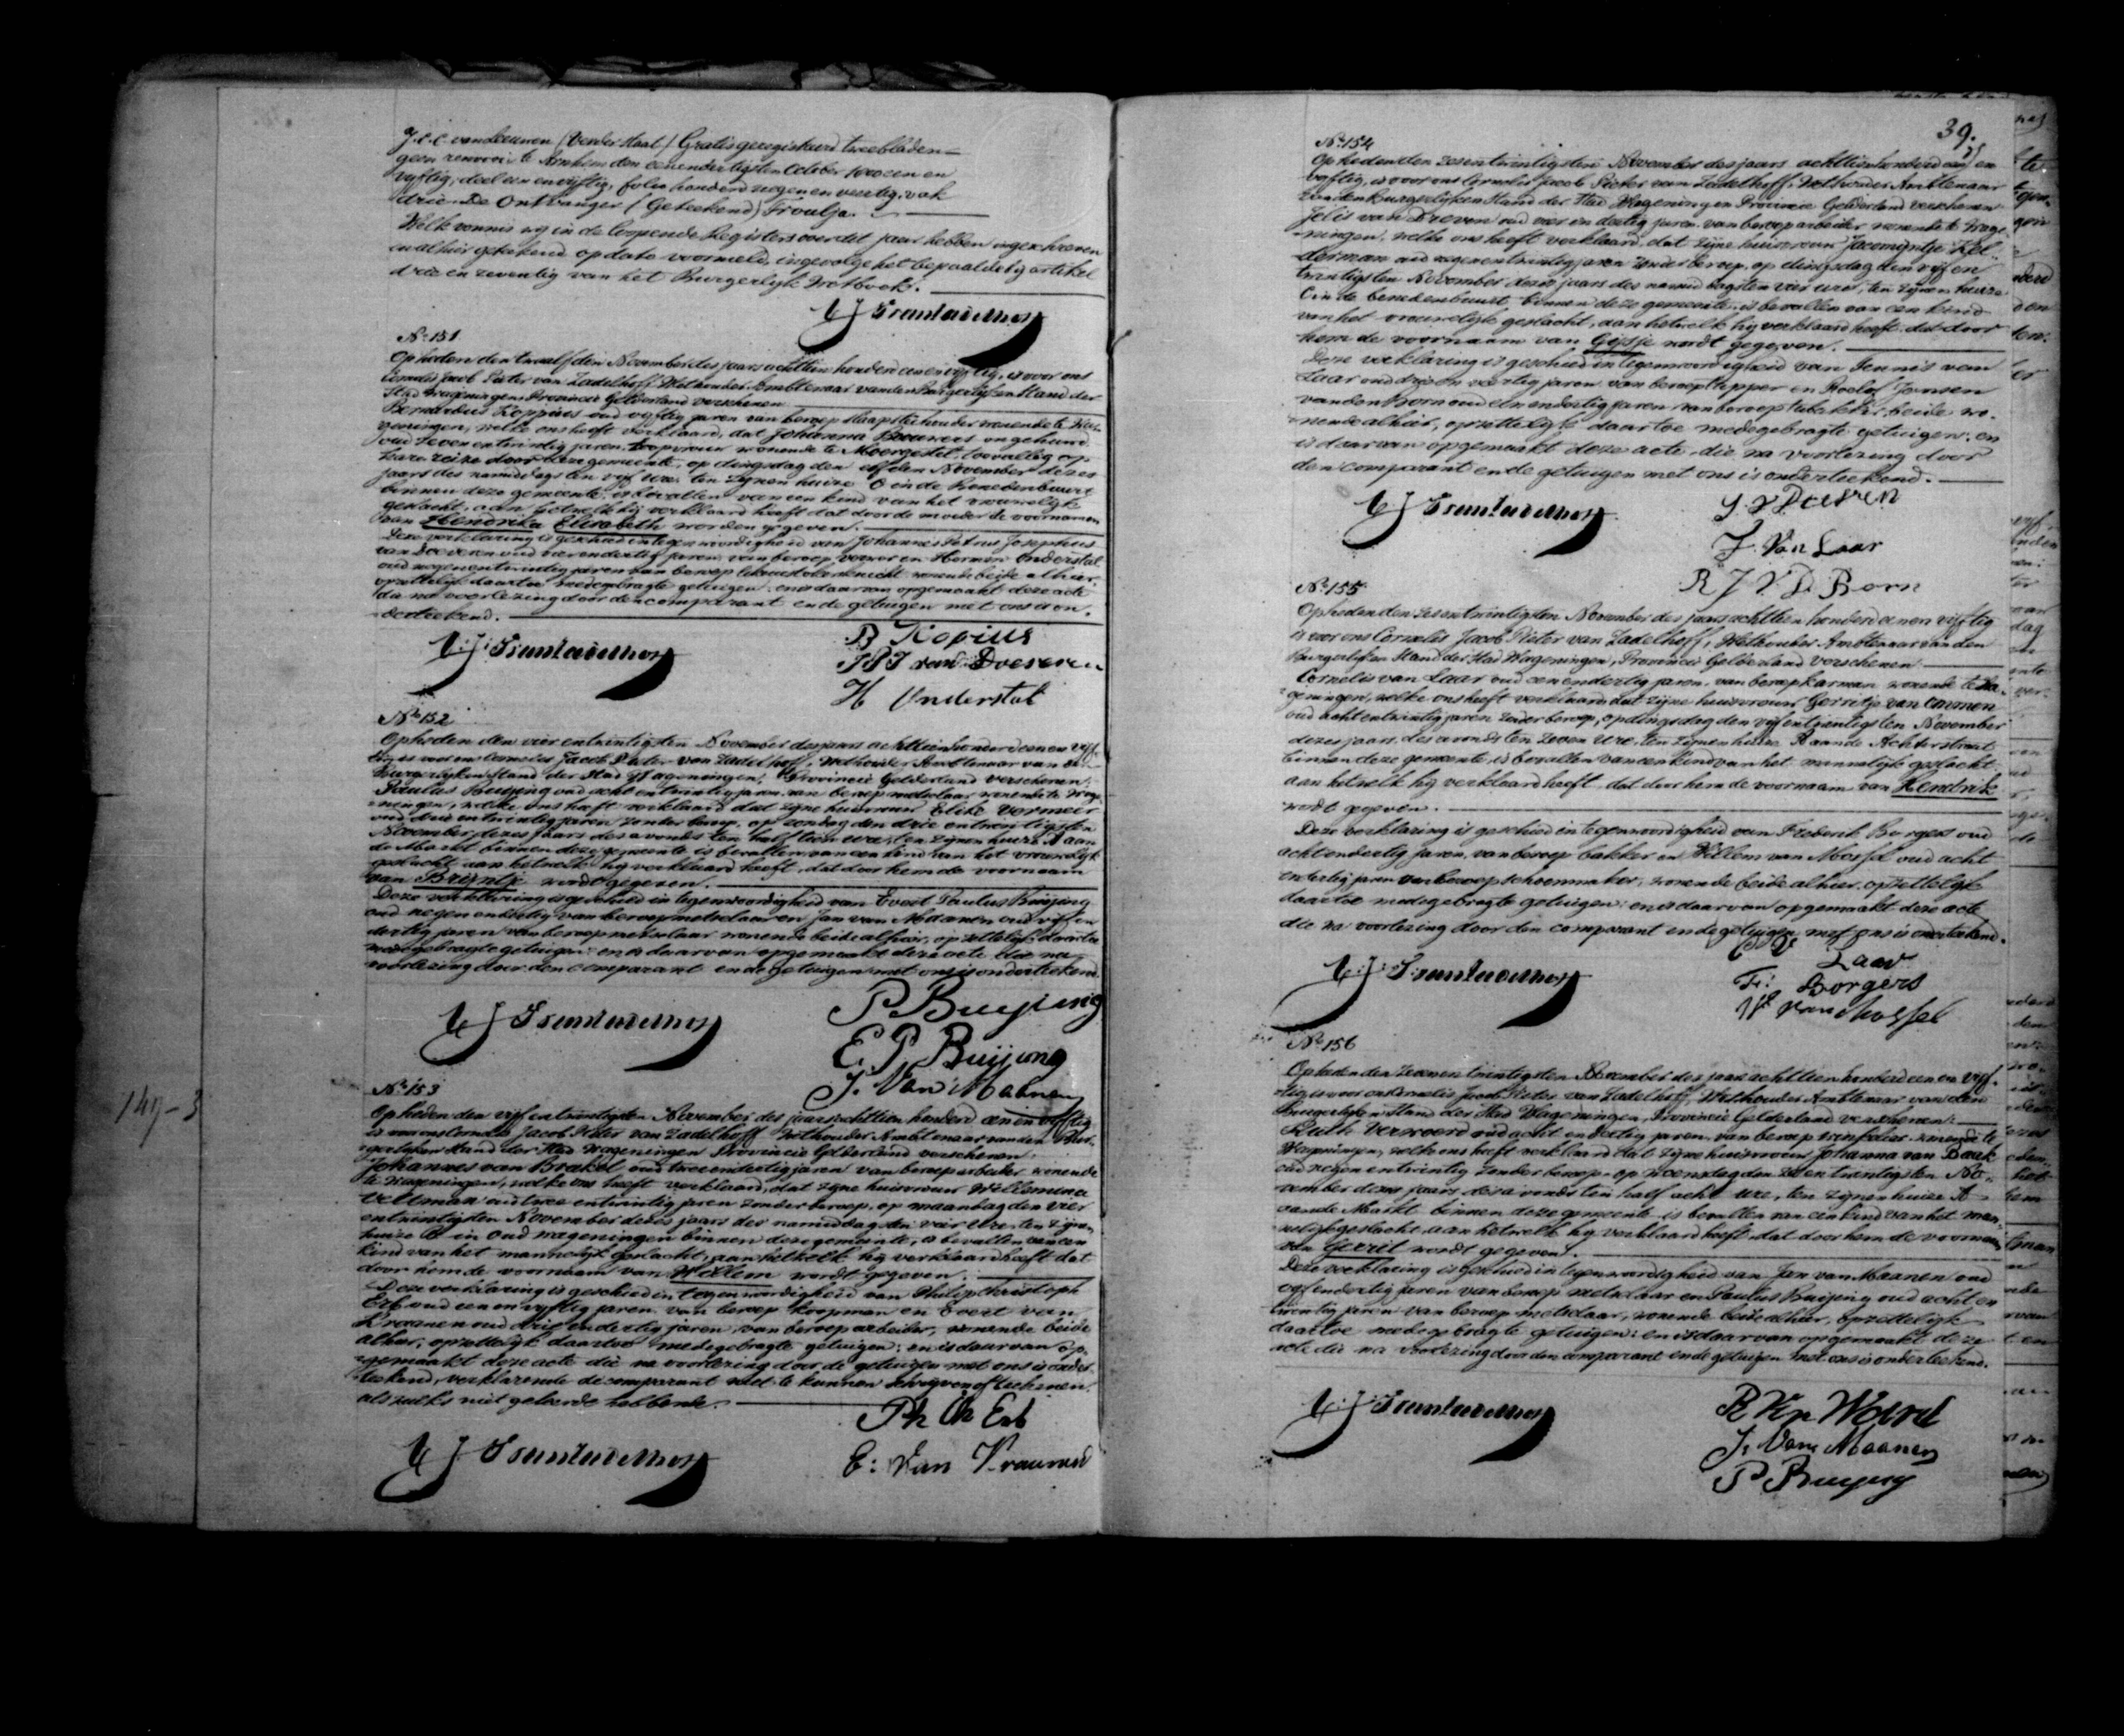 J.C.C. van Leeuwen (Verder Staat) Gratis geregistreerd twee bladen
geen renvooi te Arnhem den eenendertigsten October 1800 een en
vyftig, deel een en vyftig, folio honderd negen en veertig, vak
drie. De Ontvanger (Geteekend)
Welk vonnis wy in de loopende Registers over dit jaar hebben ingeschreven
en alhier geteekend op dato voormeld, ingevolge het bepaalde by artikel
drie en zeventig van het Burgerlyk Wetboek.
No 151
Op heden den twaalfden November des jaars achttien honderd een en vyftig, is voor ons
Cornelis Jacob Pieter van Zadelhoff, Wethouder Ambtenaar van den Burgerlyken Stand der
Stad Wageningen Provincie Gelderland verschenen
Bernardus Koppius oud vyftig jaren van beroep slaapsteehouder wonende te Wa-
geningen, welke ons heeft verklaard, dat Johanna Brouwers ongehuwd
oud zeven en twintig jaren, koopvrouw wonende te Moergestel, toevallig op
hare reize door deze gemeente, op dingsdag den elfden November dezes
jaars des namiddags ten vyf ure, ten zynen huize C in de Benedenbuurt
binnen deze gemeente, is bevallen van een kind van het vrouwelyk
geslacht, aan hetwelk hy verklaard heeft dat door de moeder de voornamen
van Hendrika Elisabeth worden gegeven.
Deze verklaring is geschied in tegenwoordigheid van Johannes Petrus Josephus
van Doeveren oud vier en dertig jaren, van beroep verver en Hermen Onderstal
oud negen en twintig jaren van beroep knecht wonende beide alhier,
opzettelyk daartoe medegebragte getuigen, en is daarvan opgemaakt deze acte
die na voorlezing door den comparant en de getuigen met ons is on-
derteekend.
B Kopius
J P J van Doeveren
H Onderstal
No 152
Op heden den vier en twintigsten November des jaars achttienhonderd een en vyf-
tig, is voor ons Cornelis Jacob Pieter van Zadelhoff, Wethouder Ambtenaar van den
Burgerlyken Stand der Stad Wageningen, Provincie Gelderland verschenen:
Paulus Buijing oud acht en twintig jaren van beroep metselaar wonende te Wage-
ningen, welke ons heeft verklaard dat zyne huisvrouw Elike Vermeer
oud drie en twintig jaren zonder beroep, op zondag den drie en twintigsten
November dezes jaars des avonds ten half tien ure, ten zynen huize A aan
de Markt binnen deze gemeente is bevallen van een kind van het vrouwelyk
geslacht, aan hetwelk hy verklaard heeft, dat door hem de voornaam
van Bruntje wordt gegeven.
Deze verklaring is geschied in tegenwoordigheid van Evert Paulus Buijing
oud negen en dertig van beroep metselaar en Jan van Maanen oud vyf en
dertig jaren van beroep metselaar wonende beide alhier, opzettelyk daartoe
medegebragte getuigen: en is daarvan opgemaakt deze acte die na
voorlezing door den comparant en de getuigen met ons is onderteekend.
P Buijing
E. P. Buijing
J. Van Maanen
No 153
Op heden den vyf en twintigsten November des jaars achttien honderd een en vyftig
is voor ons Cornelis Jacob Pieter van Zadelhoff Wethouder Ambtenaar van den Bur-
gerlyken Stand der Stad Wageningen Provincie Gelderland verschenen:
Johannes van Brakel oud twee en dertig jaren van beroep arbeider wonende
te Wageningen, welke ons heeft verklaard, dat zyne huisvrouw Willemina
Veltman oud twee en twintig jaren zonder beroep, op maandag den vier
en twintigsten November dezes jaars des namiddags ten vier ure, ten zynen
huize in Oud Wageningen binnen deze gemeente, is bevallen van een
kind van het mannelyk geslacht, aan hetwelk hy verklaard heeft dat
door hem de voornaam van Willem wordt gegeven.
Deze verklaring is geschied in tegenwoordigheid van Philip Christoph
Erb oud een en vyftig jaren van beroep koopman en Evert van
Kraanen oud drie en dertig jaren, van beroep arbeider, wonende beide
alhier, opzettelyk daartoe medegebragte getuigen; en is daarvan op-
gemaakt deze acte die na voorlezing door de getuigen met ons is onder-
teekend, verklarende de comparant niet te kunnen schryven of teekenen
als zulks niet geleerd hebbende.
Ph Ch Erb
E: Van Kraanen
149-3
39.
No 154
Op heden den zes en twintigsten November des jaars achttienhonderd een en
vyftig, is voor ons Cornelis Jacob Pieter van Zadelhoff, Wethouder Ambtenaar
van den Burgerlyken Stand der Stad Wageningen Provincie Gelderland verschenen
Jelis van Dreven oud vier en dertig jaren, van beroep arbeider wonende te Wage-
ningen, welke ons heeft verklaard, dat zyne huisvrouw Jacomyntje Kel-
derman oud negen en twintig jaren zonder beroep, op dingsdag den vyf en
twintigsten November dezes jaars des namiddags ten vier ure, ten zynen huize
C in de benedenbuurt binnen deze gemeente, is bevallen van een kind
van het vrouwelyk geslacht, aan hetwelk hy verklaard heeft, dat door
hem de voornaam van Gijsje wordt gegeven.
Deze verklaring is geschied in tegenwoordigheid van Teunis van
Laar oud drie en veertig jaren van beroep tapper en Roelof Jansen
van den Born oud een en dertig jaren van beroep , beide wo-
nende alhier, opzettelyk daartoe medegebragte getuigen; en
is daarvan opgemaakt deze acte, die na voorlezing door
den comparant en de getuigen met ons is onderteekend.
J. V Dreven
T. Van Laar
R J V D Born
No 155
Op heden den zes en twintigsten November des jaars achttien honderd een en vyftig
is voor ons Cornelis Jacob Pieter van Zadelhoff, Wethouder Ambtenaar van den
Burgerlyken Stand der Stad Wageningen, Provincie Gelderland verschenen
Cornelis van Laar oud een en dertig jaren, van beroep karman wonende te Wa-
geningen, welke ons heeft verklaard, dat zyne huisvrouw Gerritje van Ommen
oud acht en twintig jaren zonder beroep, op dingsdag den vyf en twintigsten November
dezes jaars, des avonds ten zeven ure, ten zynen huize A aan de Achterstraat
binnen deze gemeente is bevallen van een kind van het mannelyk geslacht
aan hetwelk hy verklaard heeft, dat door hem de voornaam van Hendrik
wordt gegeven.
Deze verklaring is geschied in tegenwoordigheid van Frederik Borgers oud
acht en dertig jaren, van beroep bakker en Willem van Mossel oud acht
en dertig jaren van beroep schoenmaker, wonende beide alhier, opzettelyk
daartoe medegebragte getuigen: en is daarvan opgemaakt deze acte
die na voorlezing door den comparant en de getuigen met ons is onderteekend.
Laar
F: Borgers
W van Mossel
No 156
Op heden den zeven en twintigsten November des jaars achttien honderd een en vyf-
tig, is voor ons Cornelis Jacob Pieter van Zadelhoff, Wethouder Ambtenaar van den
Burgerlyken Stand der Stad Wageningen, Provincie Gelderland verschenen:
Ruth Verwoerd oud acht en dertig jaren, van beroep wonende te
Wageningen, welke ons heeft verklaard dat zyne huisvrouw Johanna van Baak
oud negen en twintig zonder beroep, op woensdag den zes en twintigsten No-
vember dezes jaars des avonds ten half acht ure, ten zynen huize A
aan de Markt binnen deze gemeente is bevallen van een kind van het man-
nelyk geslacht, aan hetwelk hy verklaard heeft, dat door hem de voornaam
van Gerrit wordt gegeven.
Deze verklaring is geschied in tegenwoordigheid van Jan van Maanen oud
vyf en dertig jaren van beroep metselaar en Paulus Buijing oud acht en
twintig jaren van beroep metselaar, wonende beide alhier, opzettelyk
daartoe medegebragte getuigen: en is daarvan opgemaakt deze
acte die na voorlezing door den comparant en de getuigen met ons is onderteekend.
J. Van Maanen
P Buijing